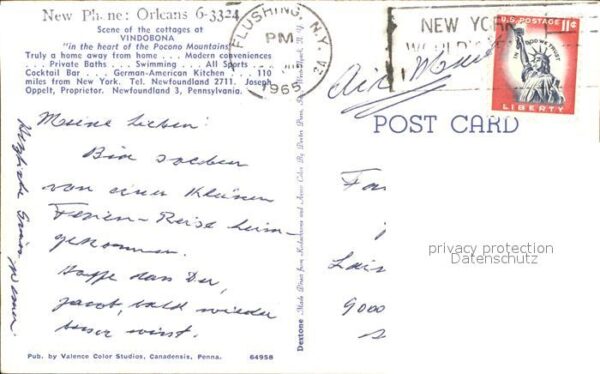 New Phone: Orleans 6-3324
Scene of the cottages at
VINDOBONA
"in the heart of the Pocono Mountains"
Truly a home away from home . . . Modern conveniences
. . . Private Baths . . . Swimming . . . All Sports . . .
Cocktail Bar . . . German-American Kitchen . . . 110
miles from New York. Tel. Newfoundland 2711. Joseph
Oppelt, Proprietor. Newfoundland 3, Pennsylvania.
FLUSHING, N.Y.
PM
1965
24
NEW YORK
WORLD'S
U.S. POSTAGE 11¢
IN GOD WE TRUST
LIBERTY
Air Mail
POST CARD
Meine Lieben!
Bin soeben
von einer kleinen
Ferien-Reise heim-
gekommen.
Hoffe dass Du,
Jacob, bald wieder
besser wirst.
Herzliche Grüsse, Werner
Dextone Made Direct from Kodachrome and Ansco Color By Dexter Press
Fa
Lais
9000
privacy protection
Datenschutz
Pub. by Valence Color Studios, Canadensis, Penna.
64958